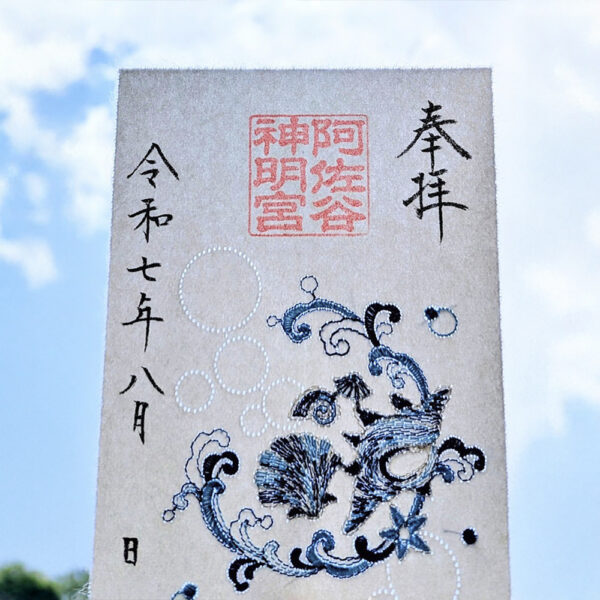 奉拝
阿佐谷
神明宮
令和七年八月
日